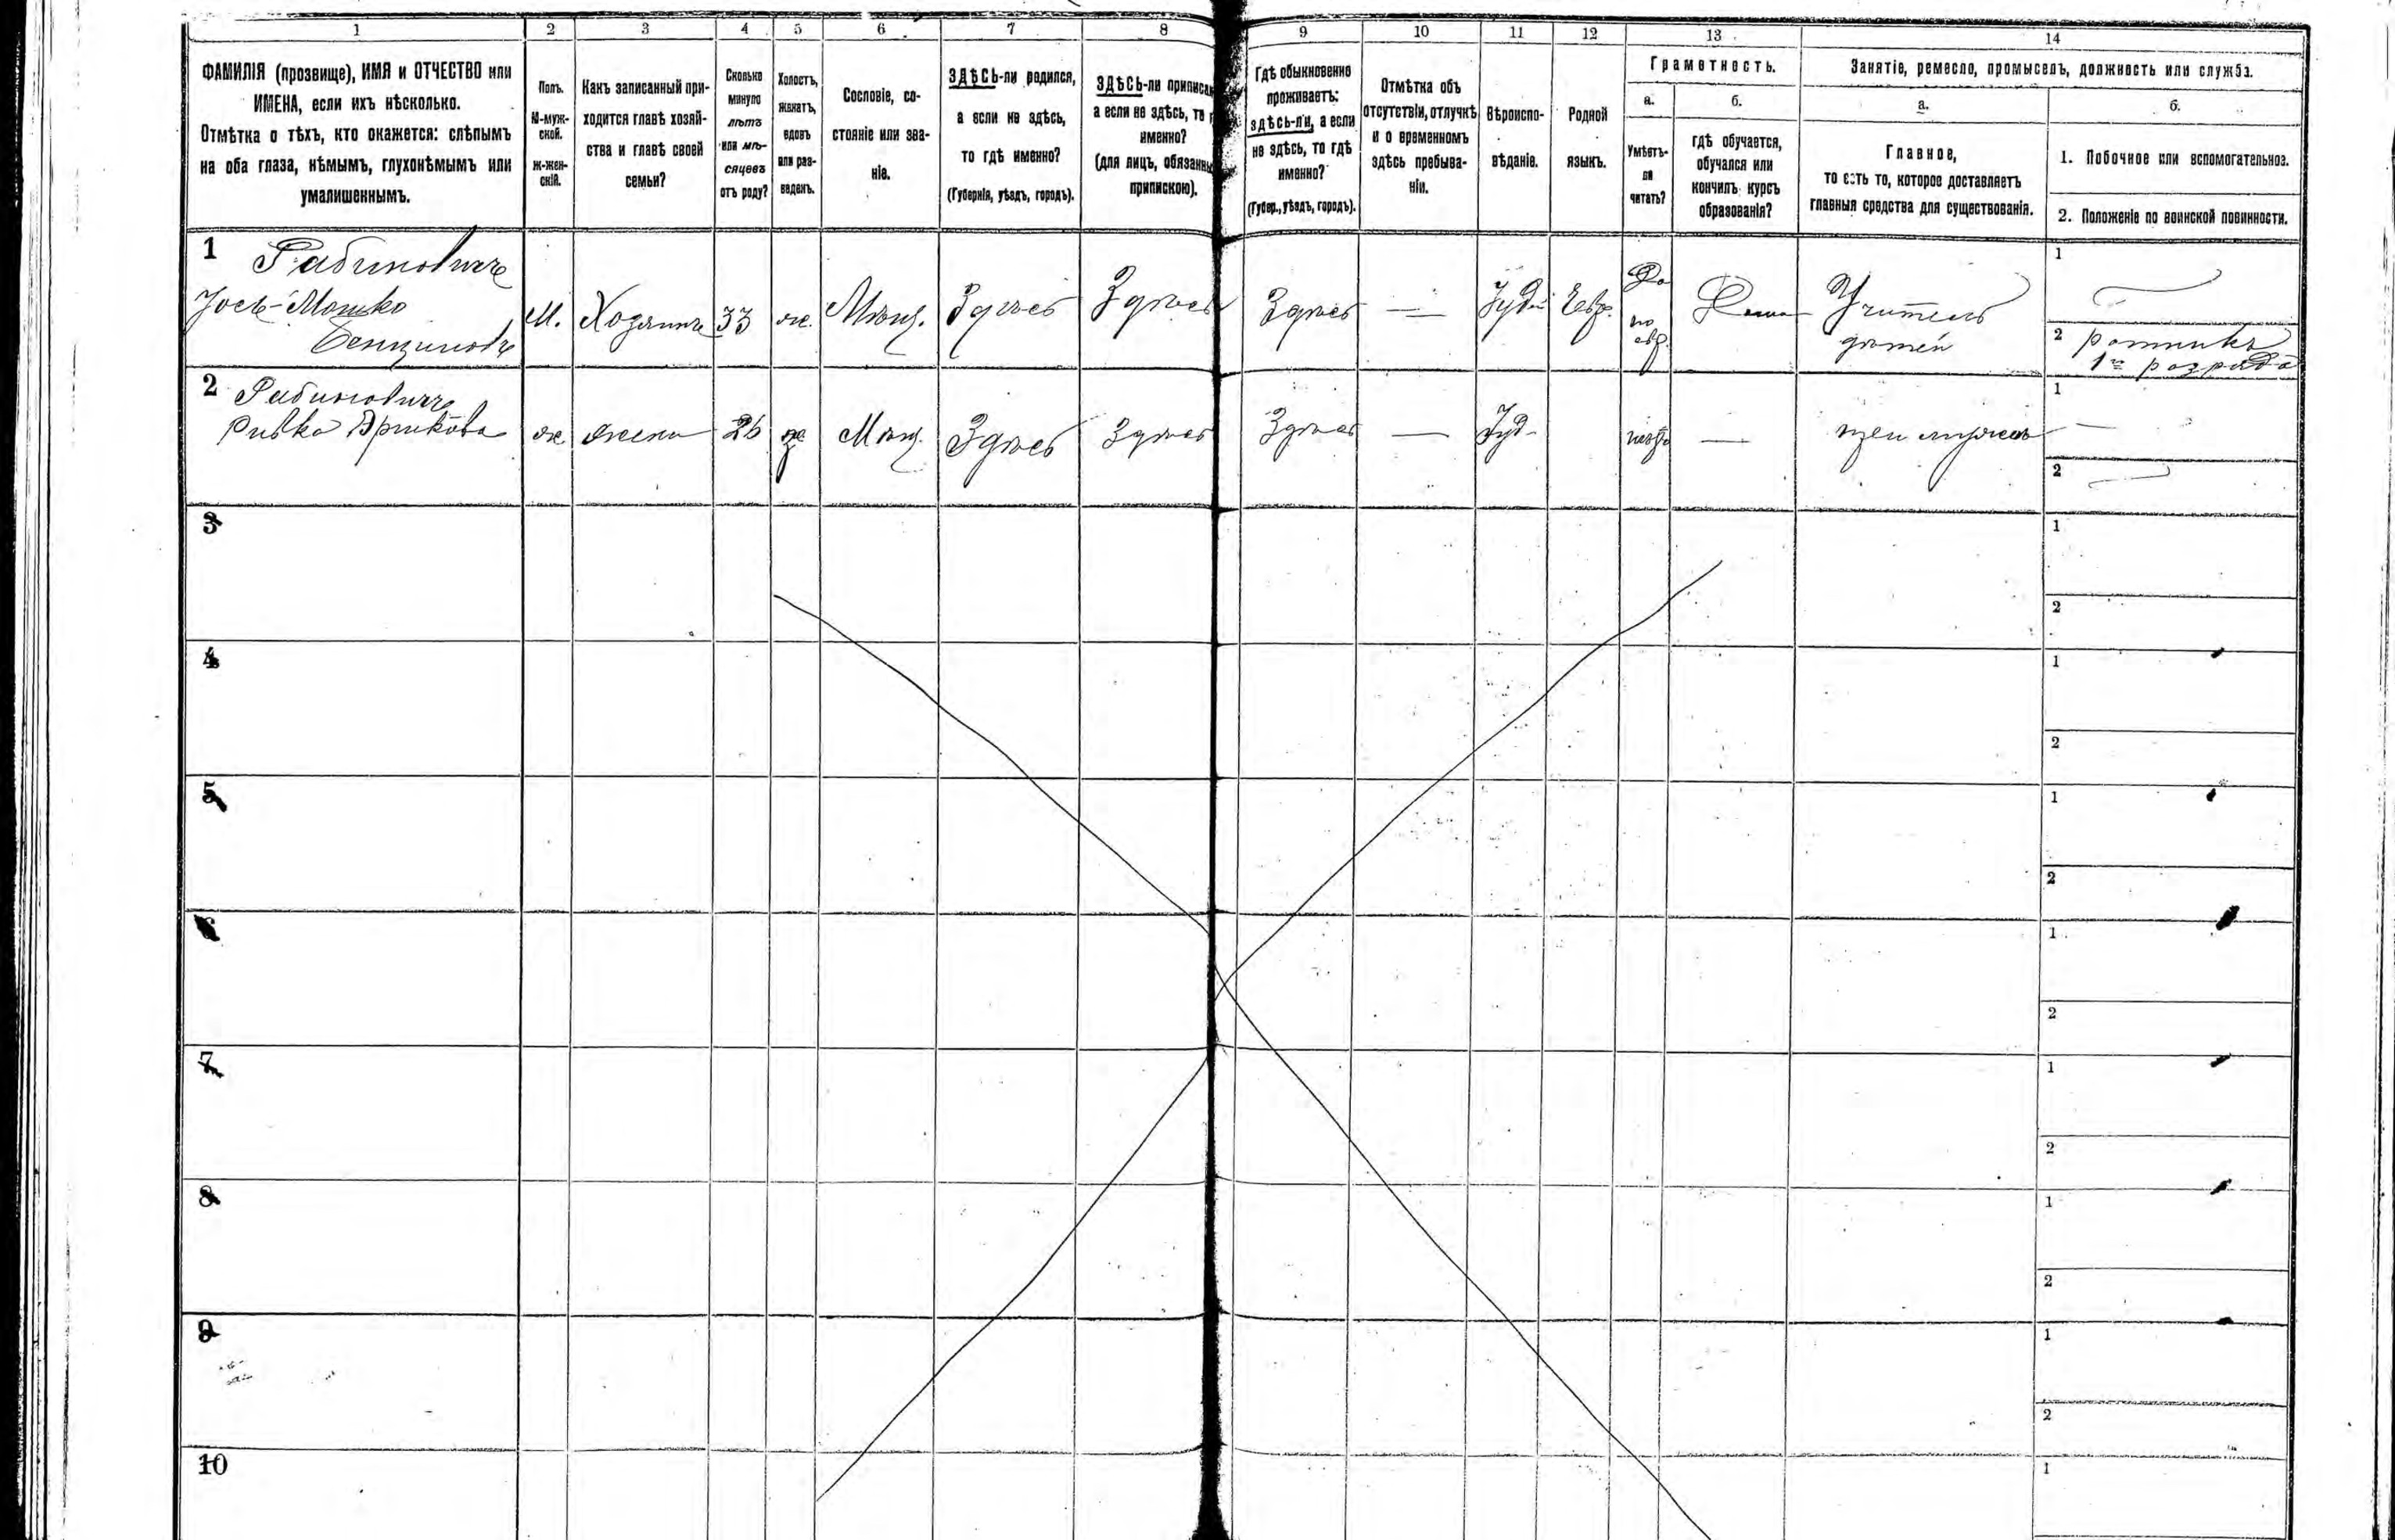 1 2 3 4 5 6 7 8 9 10 11 12 13 14
ФАМИЛІЯ (прозвище), ИМЯ и ОТЧЕСТВО или
ИМЕНА, если ихъ нѣсколько.
Отмѣтка о тѣхъ, кто окажется: слѣпымъ
на оба глаза, нѣмымъ, глухонѣмымъ или
умалишеннымъ.
Полъ.
М-муж-
ской.
Ж-жен-
скій.
Какъ записанный при-
ходится главѣ хозяй-
ства и главѣ своей
семьи?
Сколько
минуло
лѣтъ
или мѣ-
сяцевъ
отъ роду?
Холостъ,
женатъ,
вдовъ
или раз-
веденъ.
Сословіе, со-
стояніе или зва-
ніе.
ЗДѢСЬ-ли родился,
а если не здѣсь,
то гдѣ именно?
(Губернія, уѣздъ, городъ).
ЗДѢСЬ-ли приписа
а если не здѣсь, то
именно?
(для лицъ, обязанны
припискою).
Гдѣ обыкновенно
проживаетъ:
здѣсь-ли, а если
не здѣсь, то гдѣ
именно?
(Губер., уѣздъ, городъ).
Отмѣтка объ
отсутствіи, отлучкѣ
и о временномъ
здѣсь пребыва-
ніи.
Вѣроиспо-
вѣданіе.
Родной
языкъ.
Грамотность.
а.
Умѣетъ-
ли
читать?
б.
гдѣ обучается,
обучался или
кончилъ курсъ
образованія?
Занятіе, ремесло, промыселъ, должность или служба.
а.
Главное,
то есть то, которое доставляетъ
главныя средства для существованія.
б.
1. Побочное или вспомогательное.
2. Положеніе по воинской повинности.
1 Рабиновичъ
Іось-Мошко
Бенціоновъ
М. Хозяинъ 33 ж. Мѣщ. Здѣсь Здѣсь Здѣсь — Іуд. Евр.
Да
по
евр.
Дома
Учитель
дѣтей
1
2 ратникъ
1го розряда
2 Рабиновичъ
Ривка Ярикова
ж. жена 26 з. Мѣщ. Здѣсь Здѣсь Здѣсь — Іуд. —
при мужѣ
1 —
2 —
3 1
2
4 1
2
5 1
2
6 1
2
7 1
2
8 1
2
9 1
2
10 1